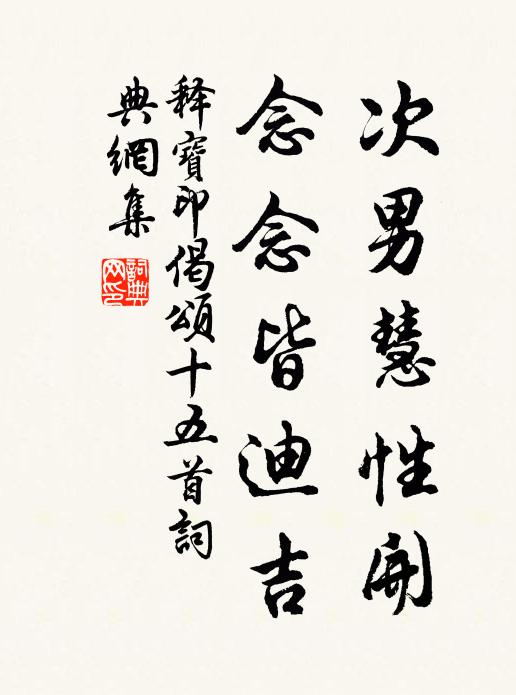 次男慧性開
念念皆迪吉
释寶印偈頌十五首詞
典網集
詞典
网印